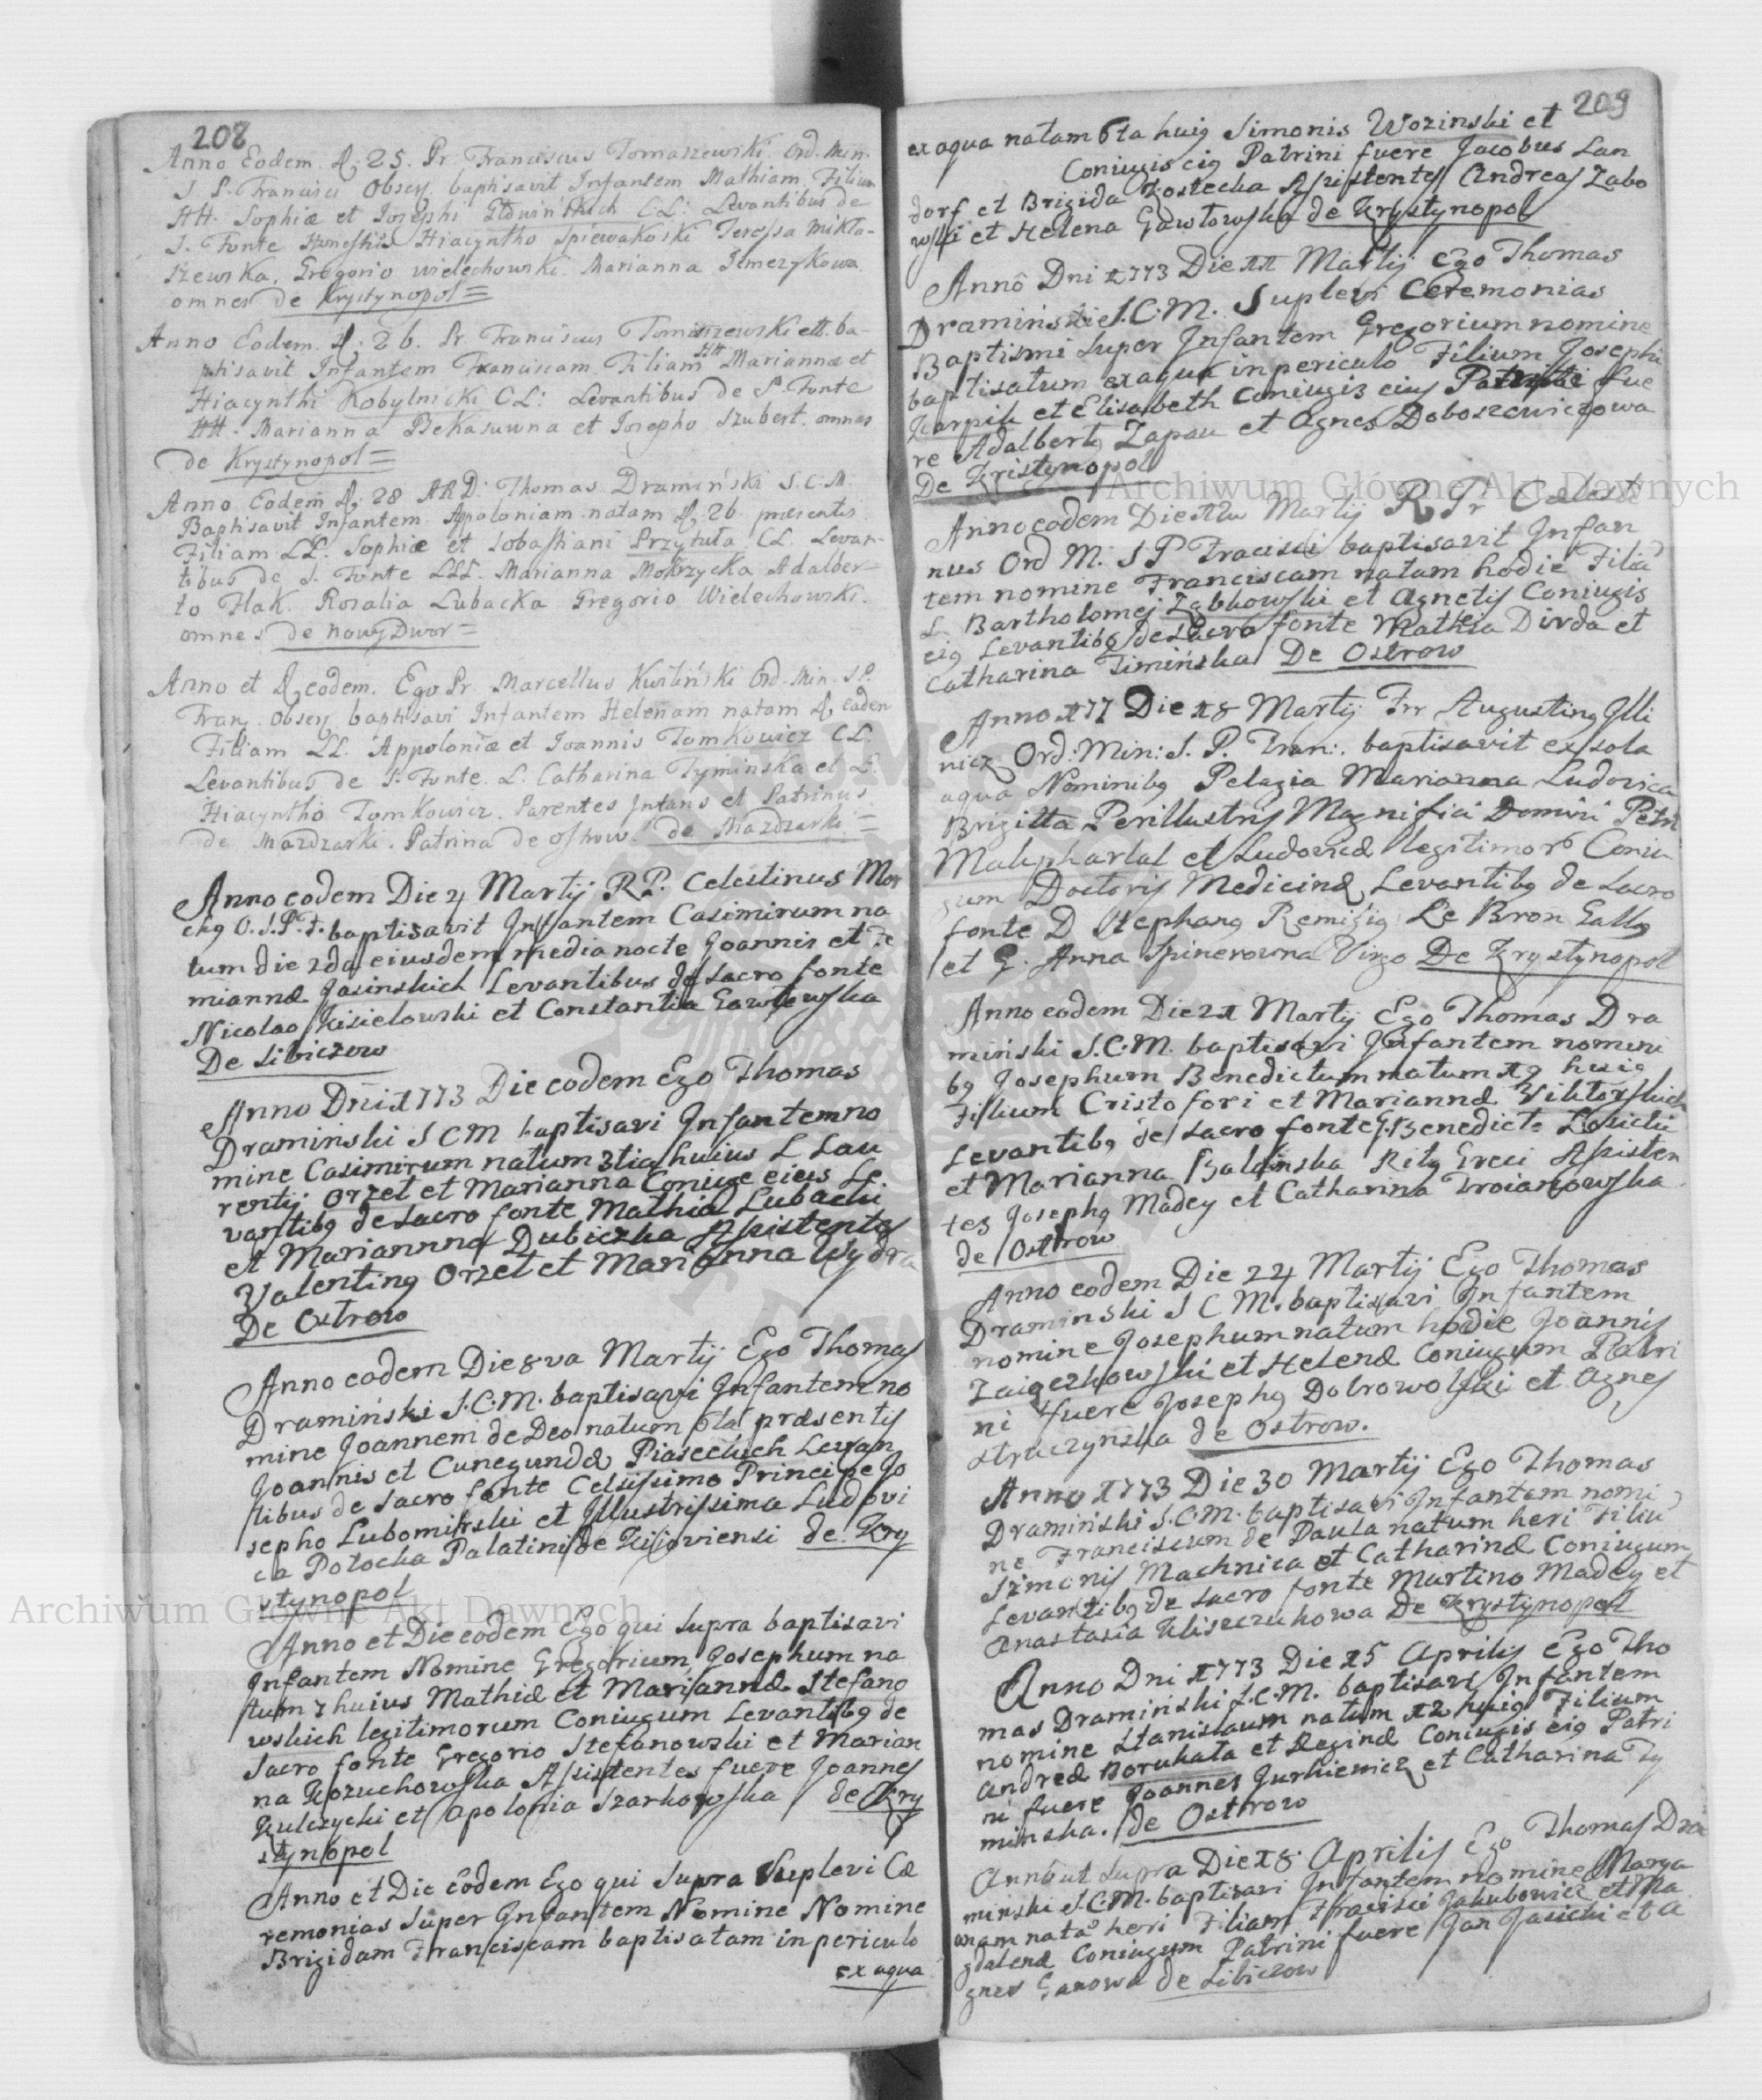 208
Anno Eodem d. 25. Pr. Franciscus Tomaszewski Ord. Min.
S. P. Francisci Obserz. baptisavit Infantem Mathiam Filium
HH. Sophiæ et Iosephi CL: Levantibus de
S. Fonte Hyacyntho Spiewakoski Teressa Mikła-
szewska, Gregorio Wielechowski. Marianna
omnes de Krystynopol=
Anno Eodem d. 26. Pr. Franciscus Tomaszewski ba-
ptisavit Infantem Franciscam Filiam HH Mariannæ et
Hiacynthi Kobylnicki CL: Levantibus de S. Fonte
HH. Marianna Bekasuwna et Iosepho Szubert. omnes
de Krystynopol=
Anno Eodem d. 28 ARD: Thomas Dramiński S.C.M.
Baptisavit Infantem Appoloniam natam d. 26 præsentis
Filiam LL. Sophiæ et Sobastiani Przytuła CL. Levan-
tibus de S. Fonte LLL. Marianna Mokrzycka Adalber-
to Flak. Rosalia Lubacka Gregorio Wielechowski.
omnes de nowy Dwor=
Anno et d. eodem. Ego Pr. Marcellus Ord. Min. S.P.
Franz. Obserz. baptisavi Infantem Helenam natam d. eaden
Filiam LL. Appoloniæ et Joannis Tomkowicz CL.
Levantibus de S. Fonte. L. Catharina Tyminska et L.
Hiacyntho Tomkowicz. Parentes Infans et Patrinus
de Mazdzarki. Patrina de ostrow. de Mazdzarki=
Anno eodem Die 4 Martij R.P. Celestinus Mos
O.S.P.F. baptisavit Infantem Casimirum na
tum die 2da eiusdem media nocte Joannis et Fe
miannæ Jasinskich Levantibus de sacro fonte
Nicolao Kisielowski et Constantia Gawłowska
De Sibiczow
Anno Dni 1773 Die eodem Ego Thomas
Dramiński S C M baptisavi Infantem no
mine Casimirum natum 3tia huius L Lau
rentij Orzet et Marianna Coniuge eius Le
vantibg de sacro fonte Mathia Lubacki
et Mariannna Dubiczka Assistentes
Valenting Orzet et Marianna Wydra
De Ostrow
Anno eodem Die 8va Martij Ego Thomas
Dramiński S.C.M. baptisavi Infantem no
mine Joannem de Deo natum 6ta præsentis
Joannis et Cunegundæ Piaseckich Levan
tibus de sacro fonte Celsissimo Principe Jo
sepho Lubomirski et Illustrissima Ludovi
ca Potocka Palatinide Kijoviensi de Kry
stynopol
Anno et Die eodem Ego qui supra baptisavi
Infantem Nomine Gregorium Josephum na
tum 7 huius Mathiæ et Mariannæ Stefano
wskich legitimorum Coniugum Levantibg de
Sacro fonte Gregorio Stefanowski et Marian
na Kozuchowska Assistentes fuere Joannes
Kulczycki et Apolonia Szarkowska de Kry
stynopol
Anno et Die eodem Ego qui supra Suplevi Cæ
remonias Super Infantem Nomine Nomine
Brigidam Franciscam baptisatam in periculo
ex aqua
209
ex aqua natam 6ta huig Simonis Wozinski et
Coniugis eig Patrini fuere Jacobus Lan
dorf et Brigida Kostecka Assistentes Andreas Zabo
wski et Helena Gawłowska de Krystynopol
Anno Dni 1773 Die 11 Martij Ego Thomas
Dramiński S.C.M. Suplevi Ceremonias
Baptismi super Infantem Gregorium nomine
baptisatum ex aqua in periculo Filium Josephi
Karpik et Elisabeth Coniugis eius Patrini fue
re Adalbertg Zapau et Agnes Doboszewiczowa
De Kristynopol
Anno eodem Die Martij R Pr Cælesti
nus Ord M. S P Fracisci baptisavit Infan
tem nomine Franciscam natam hodie Filia
L. Bartholomej Ząbkowski et Agnetis Coniugis
eig Levantibg de Sacro fonte Mathia Dirda et
Catharina Timińska De Ostrow
Anno 177 Die 18 Martij Frr Augusting Illi
nicz Ord: Min: S. P. Fran: baptisavit ex sola
aqua Nominibg Pelagia Marianna Ludovica
Brigitta Perillustris Magnifici Domini Petri
et Ludovicæ legitimor Coniu
gum Doctoris Medicinæ Levantibg de Sacro
fonte D Stephang Remigig Le Bron Gallg
et G. Anna Spinerowna Virgo De Krystynopol
Anno eodem Die 21 Martij Ego Thomas Dra
miński S.C.M. baptisavi Infantem nomini
bg Josephum Benedictum natum 19 huig
Filium Cristofori et Mariannæ Viktorskich
Levantibg de sacro fonte G. Benedicte Łosicki
et Marianna Balcinska Ritg Greci Assisten
tes Josephg Madey et Catharina Troianowska
de Ostrow
Anno eodem Die 24 Martij Ego Thomas
Draminski S C M. baptisavi Infantem
nomine Josephum natum hodie Joannis
Zaigczkowski et Helenæ Coniugum Patri
ni fuere Josephg Dobrowolski et Agnes
struczynska de Ostrow.
Anno 1773 Die 30 Martij Ego Thomas
Dramiński S.C.M. baptisavi Infantem nomi
ne Franciscum de Paula natum heri Filiu
Simonis Machnica et Catharinæ Coniugum
Levantibg de sacro fonte Martino Madey et
Anastasia Kliszczukowa De Krystynopol
Anno Dni 1773 Die 15 Aprilis Ego Tho
mas Dramiński S.C.M. baptisavi Infantem
nomine Stanislaum natum 12 huig Filium
Andreæ Borukata et Reginæ Coniugis eig Patri
ni fuere Joannes Jurkiewicz et Catharina Ty
minska. de Ostrow
Anno ut supra Die 18. Aprilis Ego Thomas Dra
minski S.C.M. baptisavi Infantem nomine Marya
annam nata heri Filiam Fracisci Jakubowicz et Ma
gdalenæ Coniugum Patrini fuere Jan Jasicki et A
gnes Ganowa de Sibiczow
Archiwum Główne Akt Dawnych
Archiwum Główne Akt Dawnych